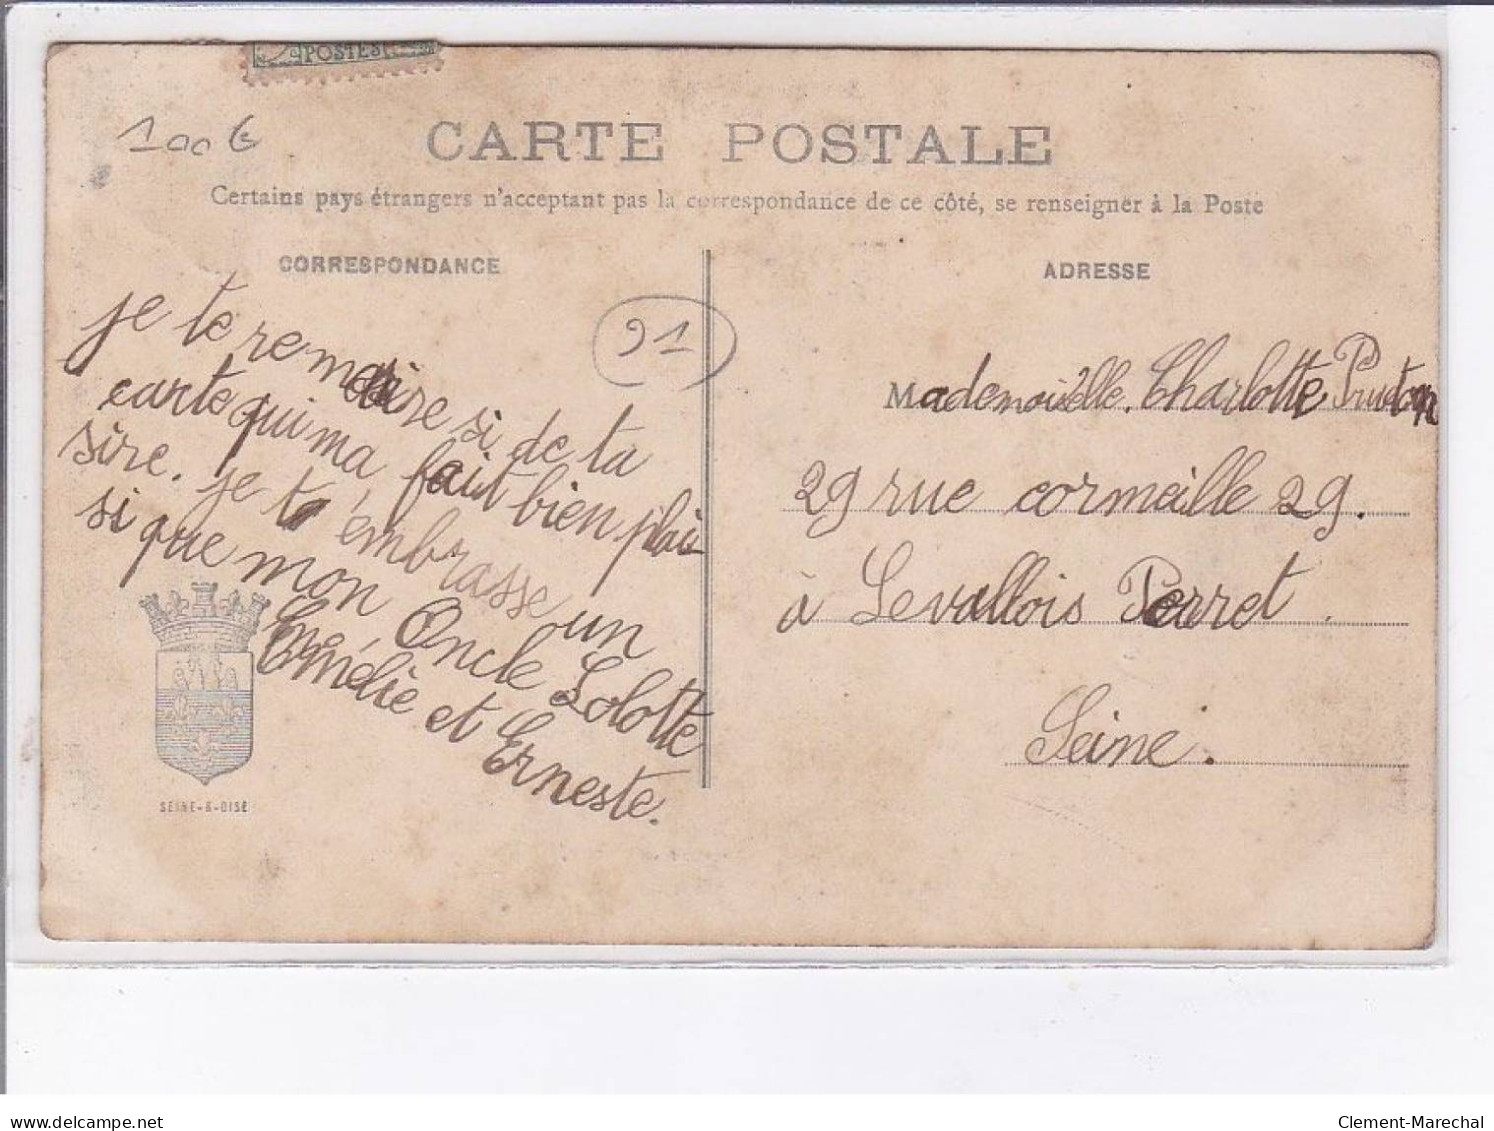 POSTES
100€
CARTE POSTALE
Certains pays étrangers n'acceptant pas la correspondance de ce côté, se renseigner à la Poste
CORRESPONDANCE
91
je te remersire si de ta
carte qui ma fait bien plai
sire. je te embrasse un
si que mon Oncle Lolotte
Emélie et Erneste.
SEINE-&-OISE
ADRESSE
Mademoiselle. Charlotte Prudon
29 rue cormeille 29.
à Levallois Perret.
Seine.
delcampe.net
Clement-Marechal